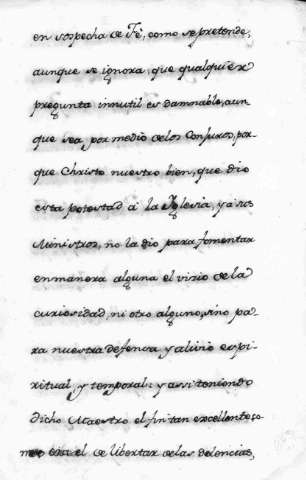 en sospecha de Fé, como se pretende,
aunque se ignora, que qualquiera
pregunta innutil es damnable, aun
que sea por medio delos Conjuros, por-
que Christo nuestro bien, que dio
esta potestad á la Iglesia, ya sus
Ministros, no la dio para fomentar
enmanera alguna el vizio dela
curiosidad, ni otro alguno, sino pa-
ra nuestra defensa y alivio espi-
ritual y temporal: y assi teniendo
dicho Maestro el fin tan excellente, co-
mo era el de libertar delas dolencias,